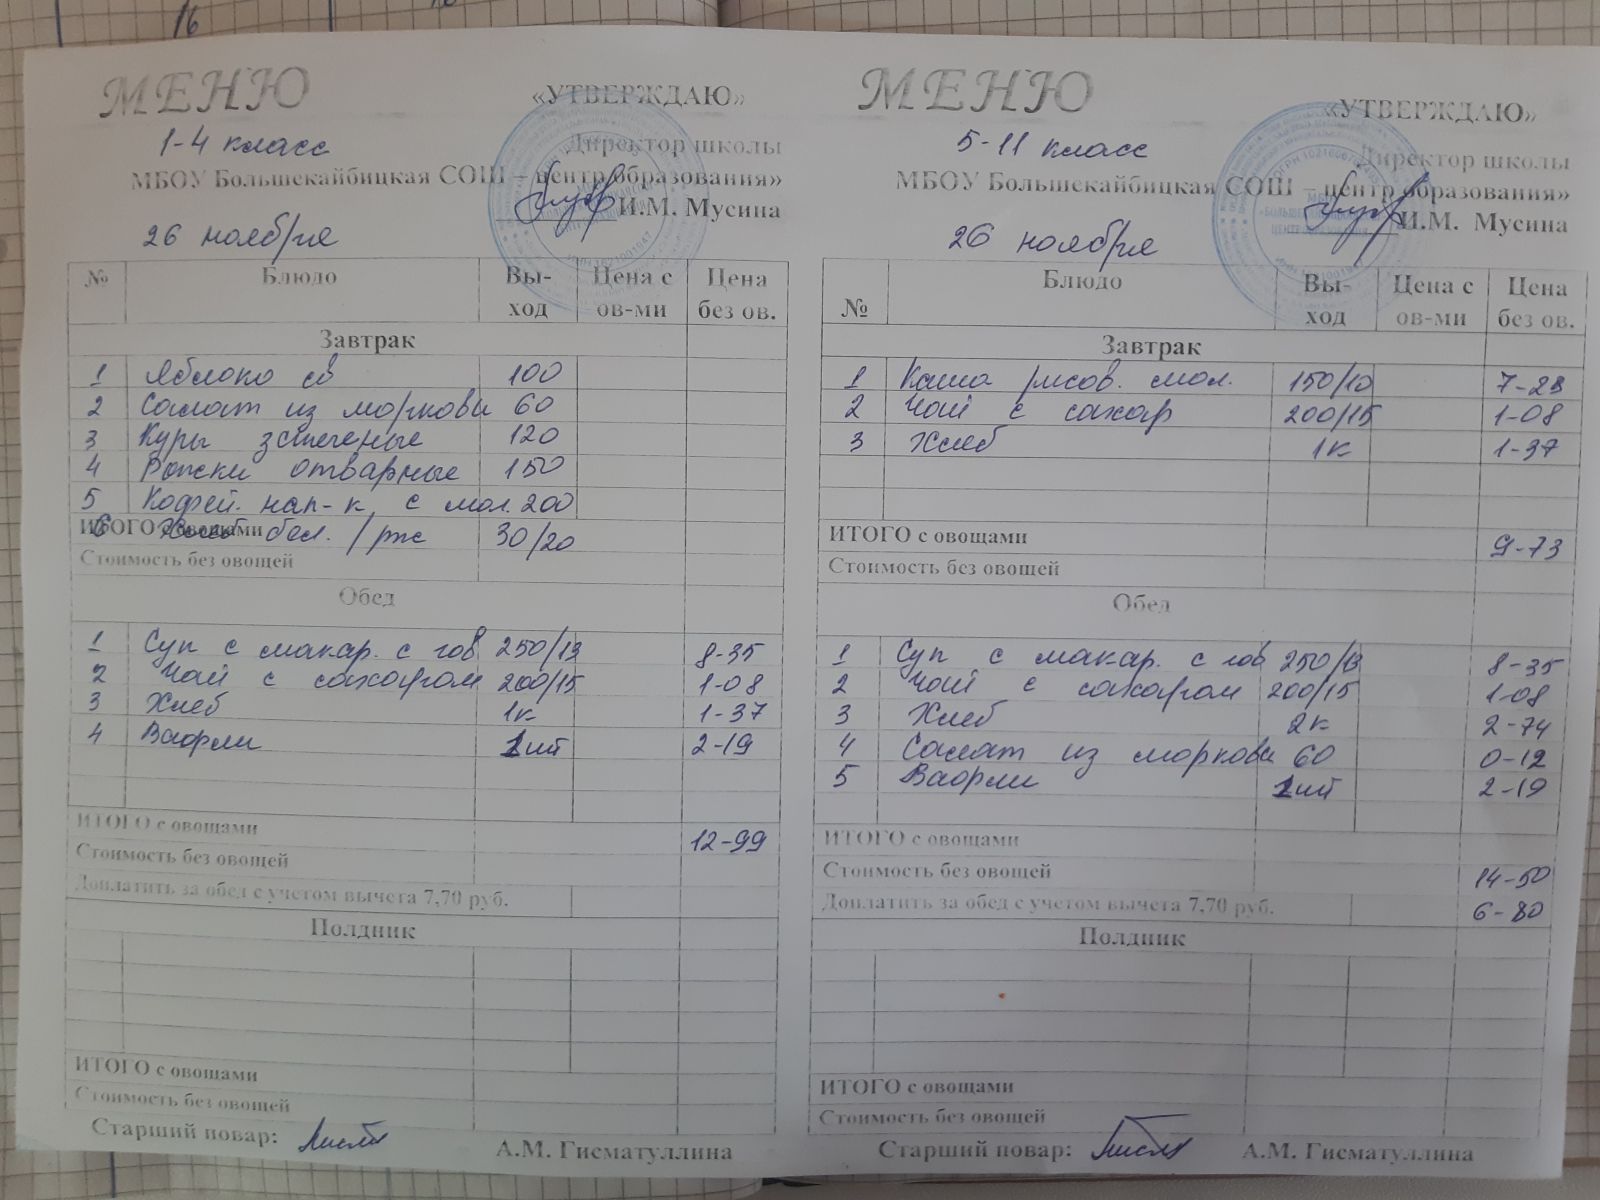 16
МЕНЮ
«УТВЕРЖДАЮ»
1-4 класс
Директор школы
МБОУ Большекайбицкая СОШ – центр образования»
И.М. Мусина
26 ноября
№ Блюдо Вы-ход Цена с ов-ми Цена без ов.
Завтрак
1 Яблоко св 100
2 Салат из моркови 60
3 Куры запеченые 120
4 Рожки отварные 150
5 Кофей. нап-к с мол. 200
ИТОГО с овощами
6 Хлеб бел. / рж 30/20
Стоимость без овощей
Обед
1 Суп с макар. с гов 250/13 8-35
2 Чай с сахаром 200/15 1-08
3 Хлеб 1к 1-37
4 Вафли 1шт 2-19
ИТОГО с овощами 12-99
Стоимость без овощей
Доплатить за обед с учетом вычета 7,70 руб.
Полдник
ИТОГО с овощами
Стоимость без овощей
Старший повар: А.М. Гисматуллина
МЕНЮ
«УТВЕРЖДАЮ»
5-11 класс
Директор школы
МБОУ Большекайбицкая СОШ – центр образования»
И.М. Мусина
26 ноября
№ Блюдо Вы-ход Цена с ов-ми Цена без ов.
Завтрак
1 Каша рисов. мол. 150/10 7-28
2 Чай с сахар 200/15 1-08
3 Хлеб 1к 1-37
ИТОГО с овощами 9-73
Стоимость без овощей
Обед
1 Суп с макар. с гов 250/13 8-35
2 Чай с сахаром 200/15 1-08
3 Хлеб 2к 2-74
4 Салат из моркови 60 0-12
5 Вафли 1шт 2-19
ИТОГО с овощами
Стоимость без овощей 14-50
Доплатить за обед с учетом вычета 7,70 руб. 6-80
Полдник
ИТОГО с овощами
Стоимость без овощей
Старший повар: А.М. Гисматуллина